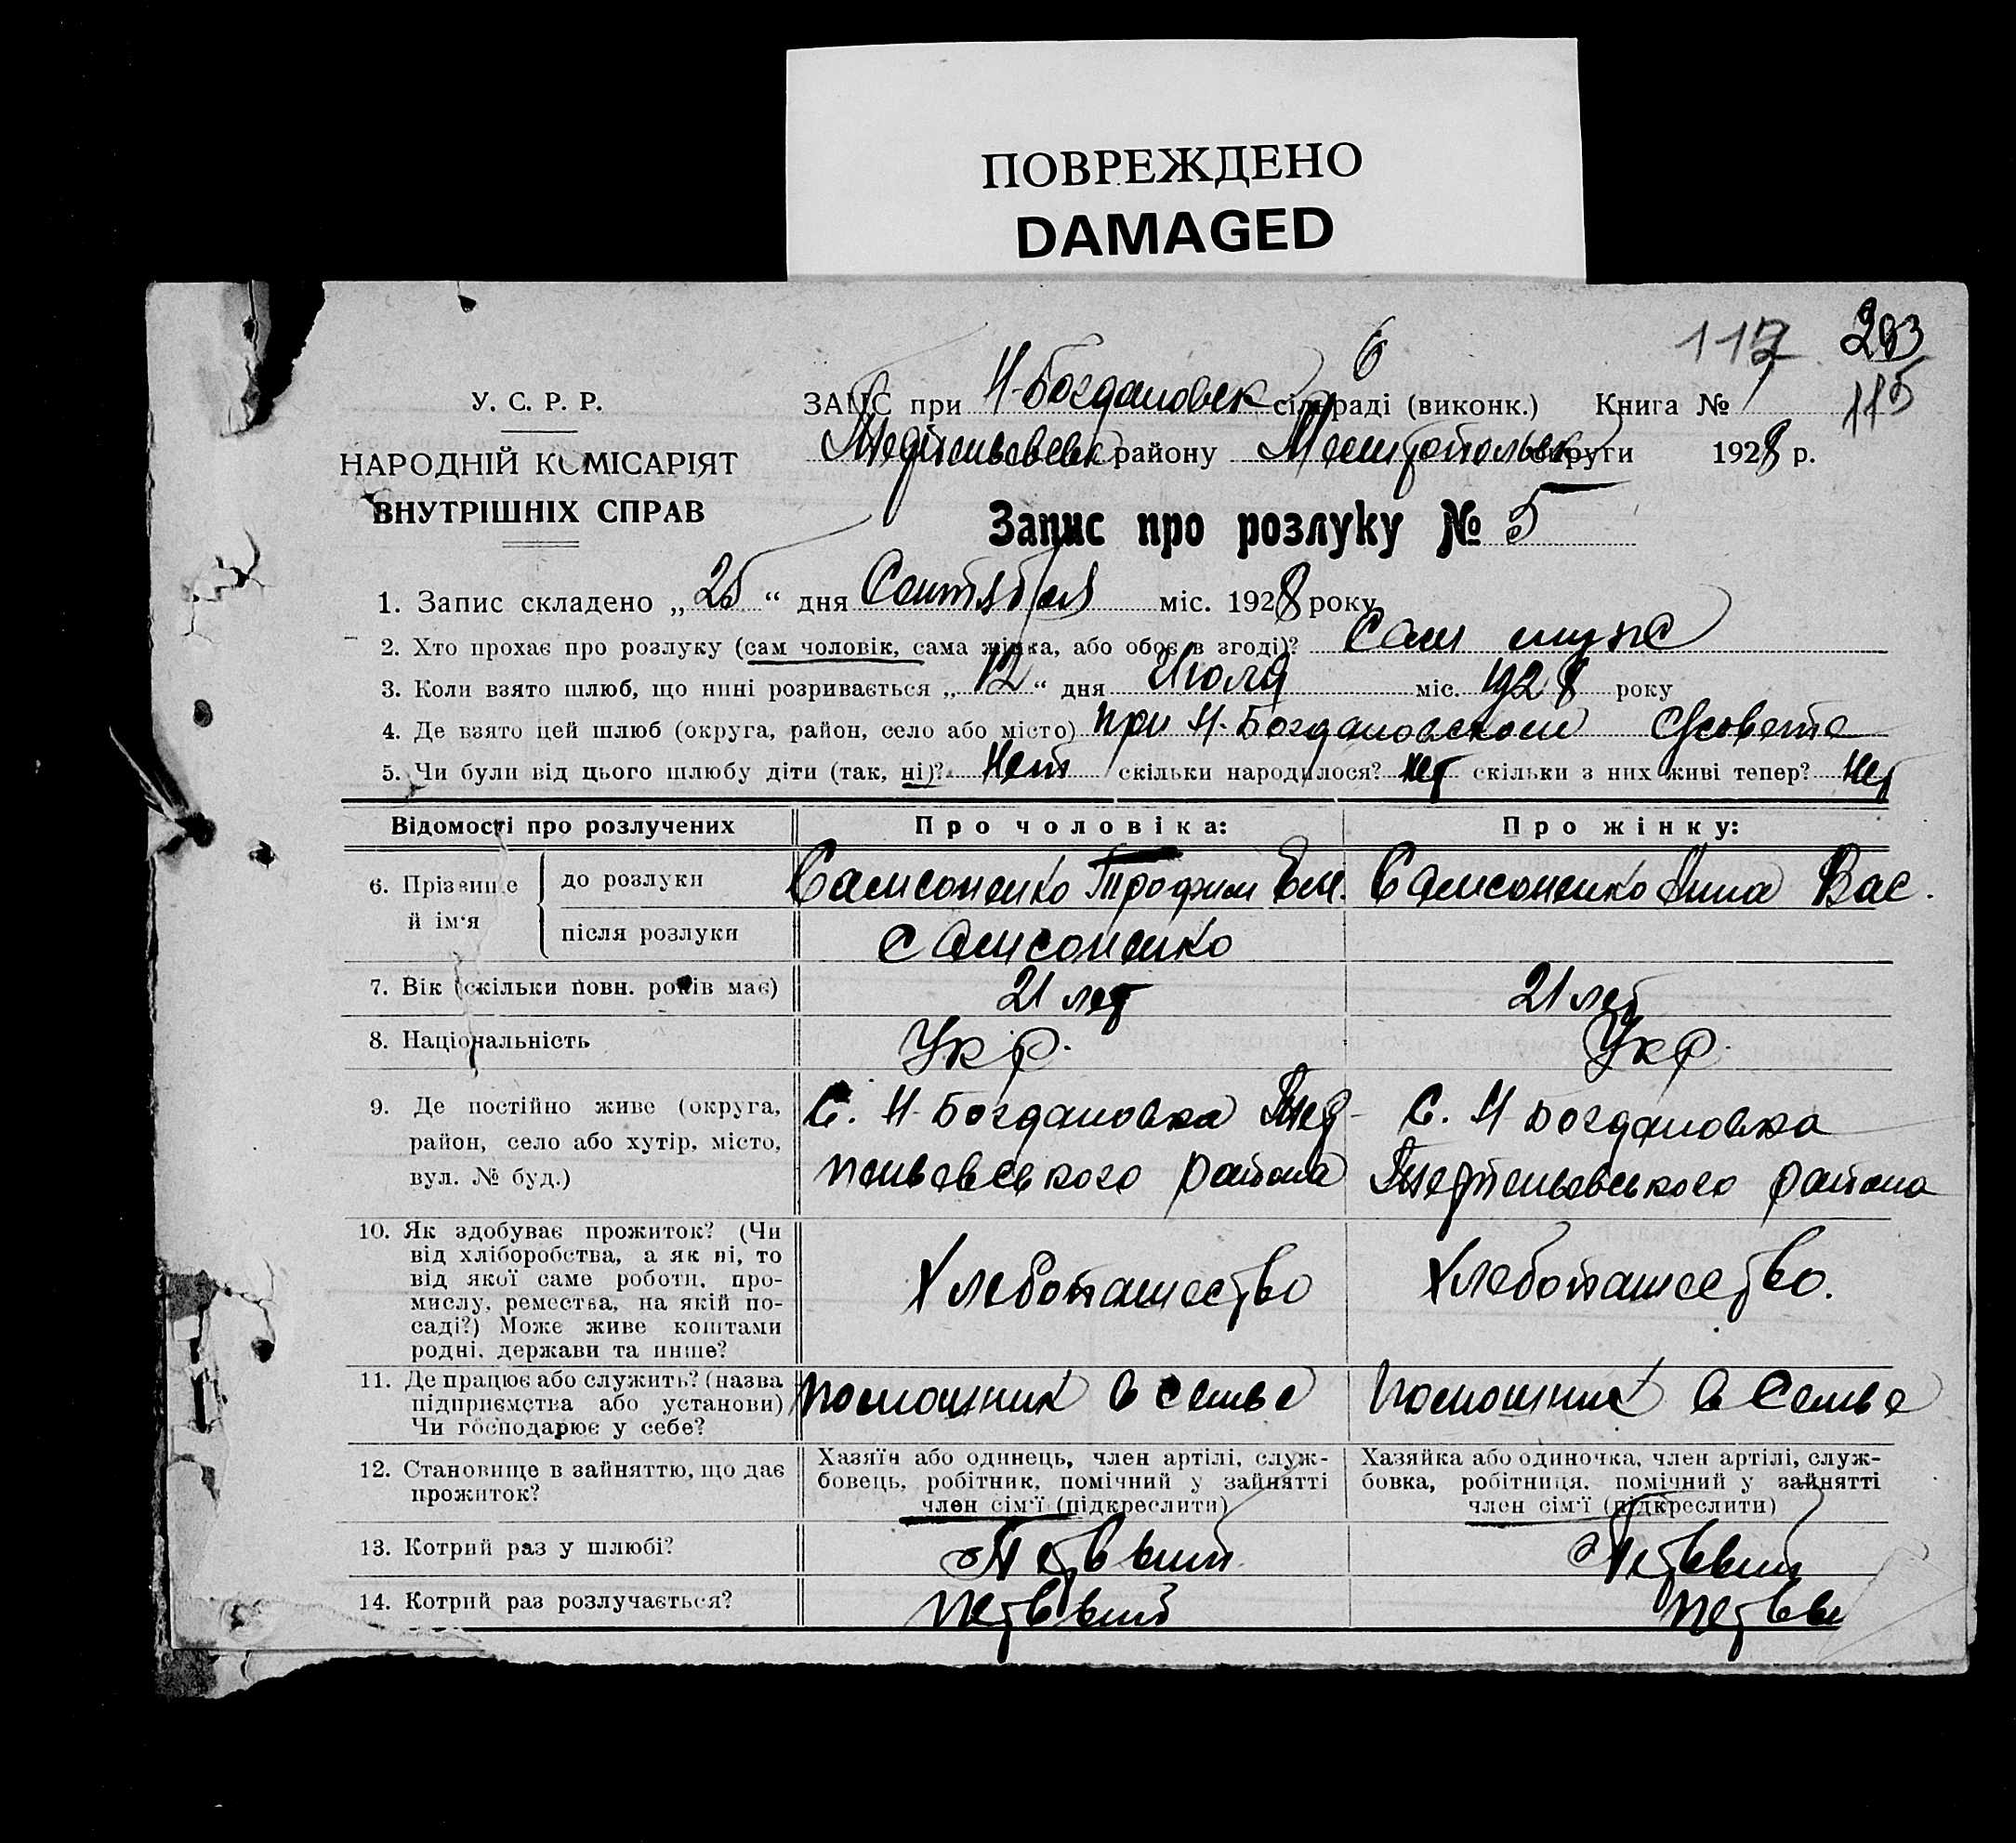 ПОВРЕЖДЕНО
DAMAGED
117 203
115
У. С. Р. Р.
НАРОДНІЙ КОМІСАРІЯТ
ВНУТРІШНІХ СПРАВ
ЗАПС при Н-Богдановск сільраді (виконк.) Книга №
району Мелитопольск округи 1928 р.
Запис про розлуку № 5
1. Запис складено „25“ дня Сентября міс. 1928 року
2. Хто прохає про розлуку (сам чоловік, сама жінка, або обоє в згоді)? Сам муж
3. Коли взято шлюб, що нині розривається „12“ дня Июля міс. 1928 року
4. Де взято цей шлюб (округа, район, село або місто) при Н-Богдановском С/совете
5. Чи були від цього шлюбу діти (так, ні)? Нет скільки народилося? нет скільки з них живі тепер? нет
Відомості про розлучених Про чоловіка: Про жінку:
6. Прізвище й ім'я до розлуки Самсоненко Трофим Ем. Самсоненко Анна Вас.
після розлуки Самсоненко
7. Вік (скільки повн. років має) 21 лет 21 лет
8. Національність Укр. Укр.
9. Де постійно живе (округа, район, село або хутір, місто, вул. № буд.)
С. Н-Богдановка района
С. Н Богдановка района
10. Як здобуває прожиток? (Чи
від хліборобства, а як ні, то
від якої саме роботи, про-
мислу, ремества, на якій по-
саді?) Може живе коштами
родні, держави та инше?
Хлебопашество Хлебопашество.
11. Де працює або служить? (назва
підприємства або установи)
Чи господарює у себе?
помошник в семье помошник в семье
12. Становище в зайняттю, що дає
прожиток?
Хазяїн або одинець, член артілі, служ-
бовець, робітник, помічний у зайнятті
член сім'ї (підкреслити)
Хазяйка або одиночка, член артілі, служ-
бовка, робітниця, помічний у зайнятті
член сім'ї (підкреслити)
13. Котрий раз у шлюбі? Первый Первый
14. Котрий раз розлучається? первый первы